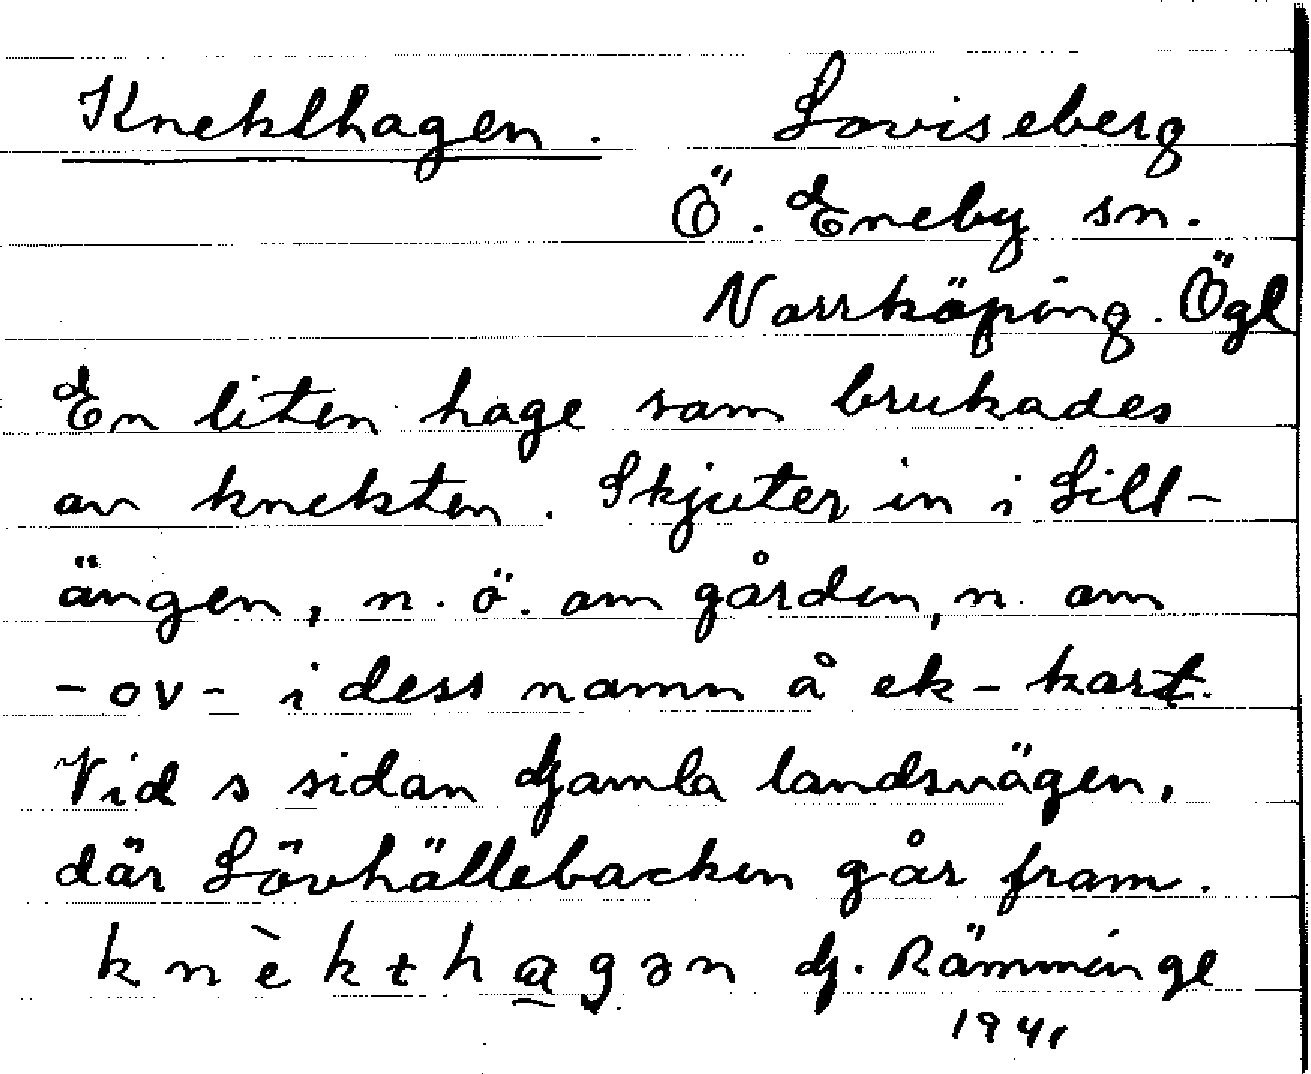 Knekthagen. Loviseberg
Ö. Eneby sn.
Norrköping. Ögl
En liten hage som brukades
av knekten. Skjuter in i Lill-
ängen, n. ö. om gården, n. om
-ov- i dess namn å ek-kart.
Vid s sidan Gamla landsvägen,
där Lövhällebacken går fram.
knèkthagən G. Rämminge
1941